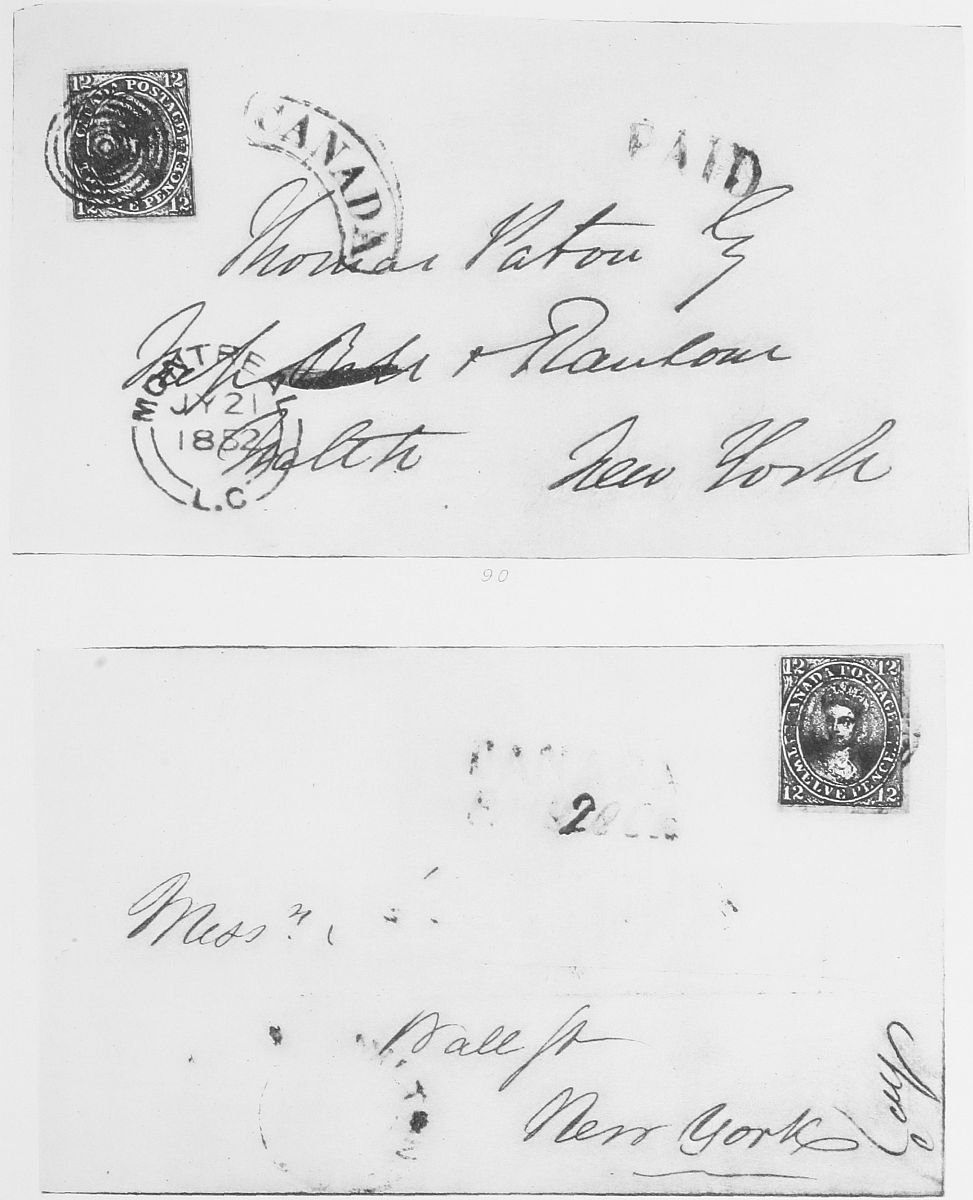 12 12
CANADA POSTAGE
PENCE
12 12
CANADA
PAID
Thomas Paton Esq
& Ransom
MONTREAL
JY 21
1852
L.C
New York
90
12 12
CANADA POSTAGE
TWELVE PENCE
12 12
CANADA
2
Messrs.
Wall St
New York